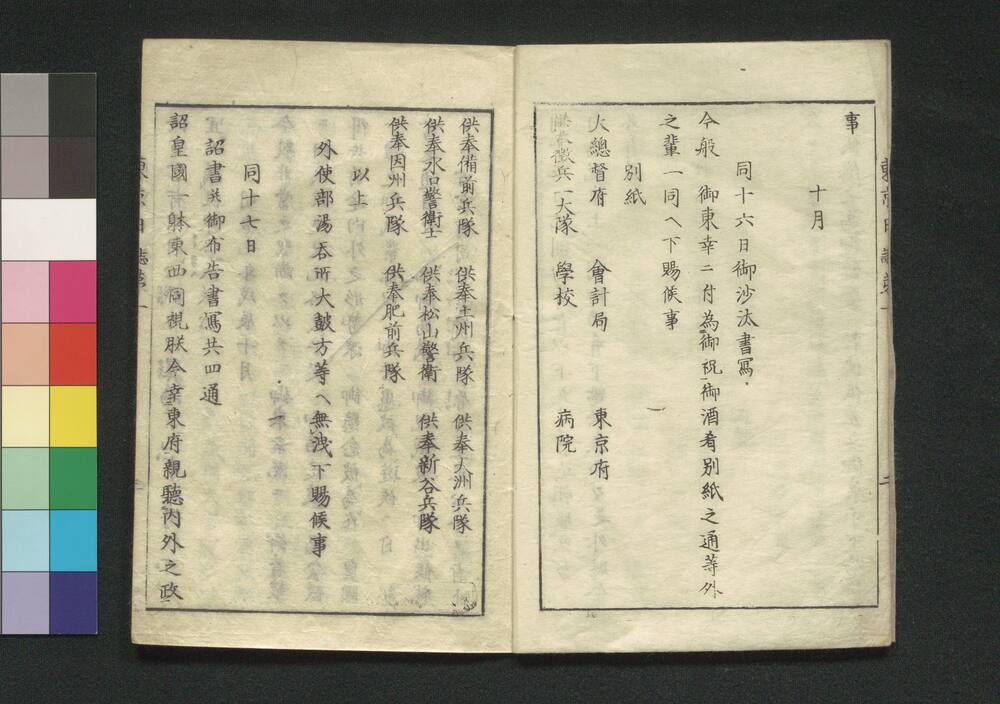 事
十月
同十六日御沙汰書寫
今般 御東幸ニ付為御祝御酒肴別紙之通等外
之輩一同ヘ下賜候事
別紙
大總督府 會計局 東京府
徴兵一大隊 學校 病院
供奉備前兵隊 供奉土州兵隊 供奉大洲兵隊
供奉水口警衛士 供奉松山警衛 供奉新谷兵隊
供奉因州兵隊 供奉肥前兵隊
以上
外使部湯呑所大皷方等ヘ無洩下賜候事
同十七日
詔書并御布告書寫共四通
詔皇國一體東西同視朕今幸東府親聽内外之政
東京日誌第一
二